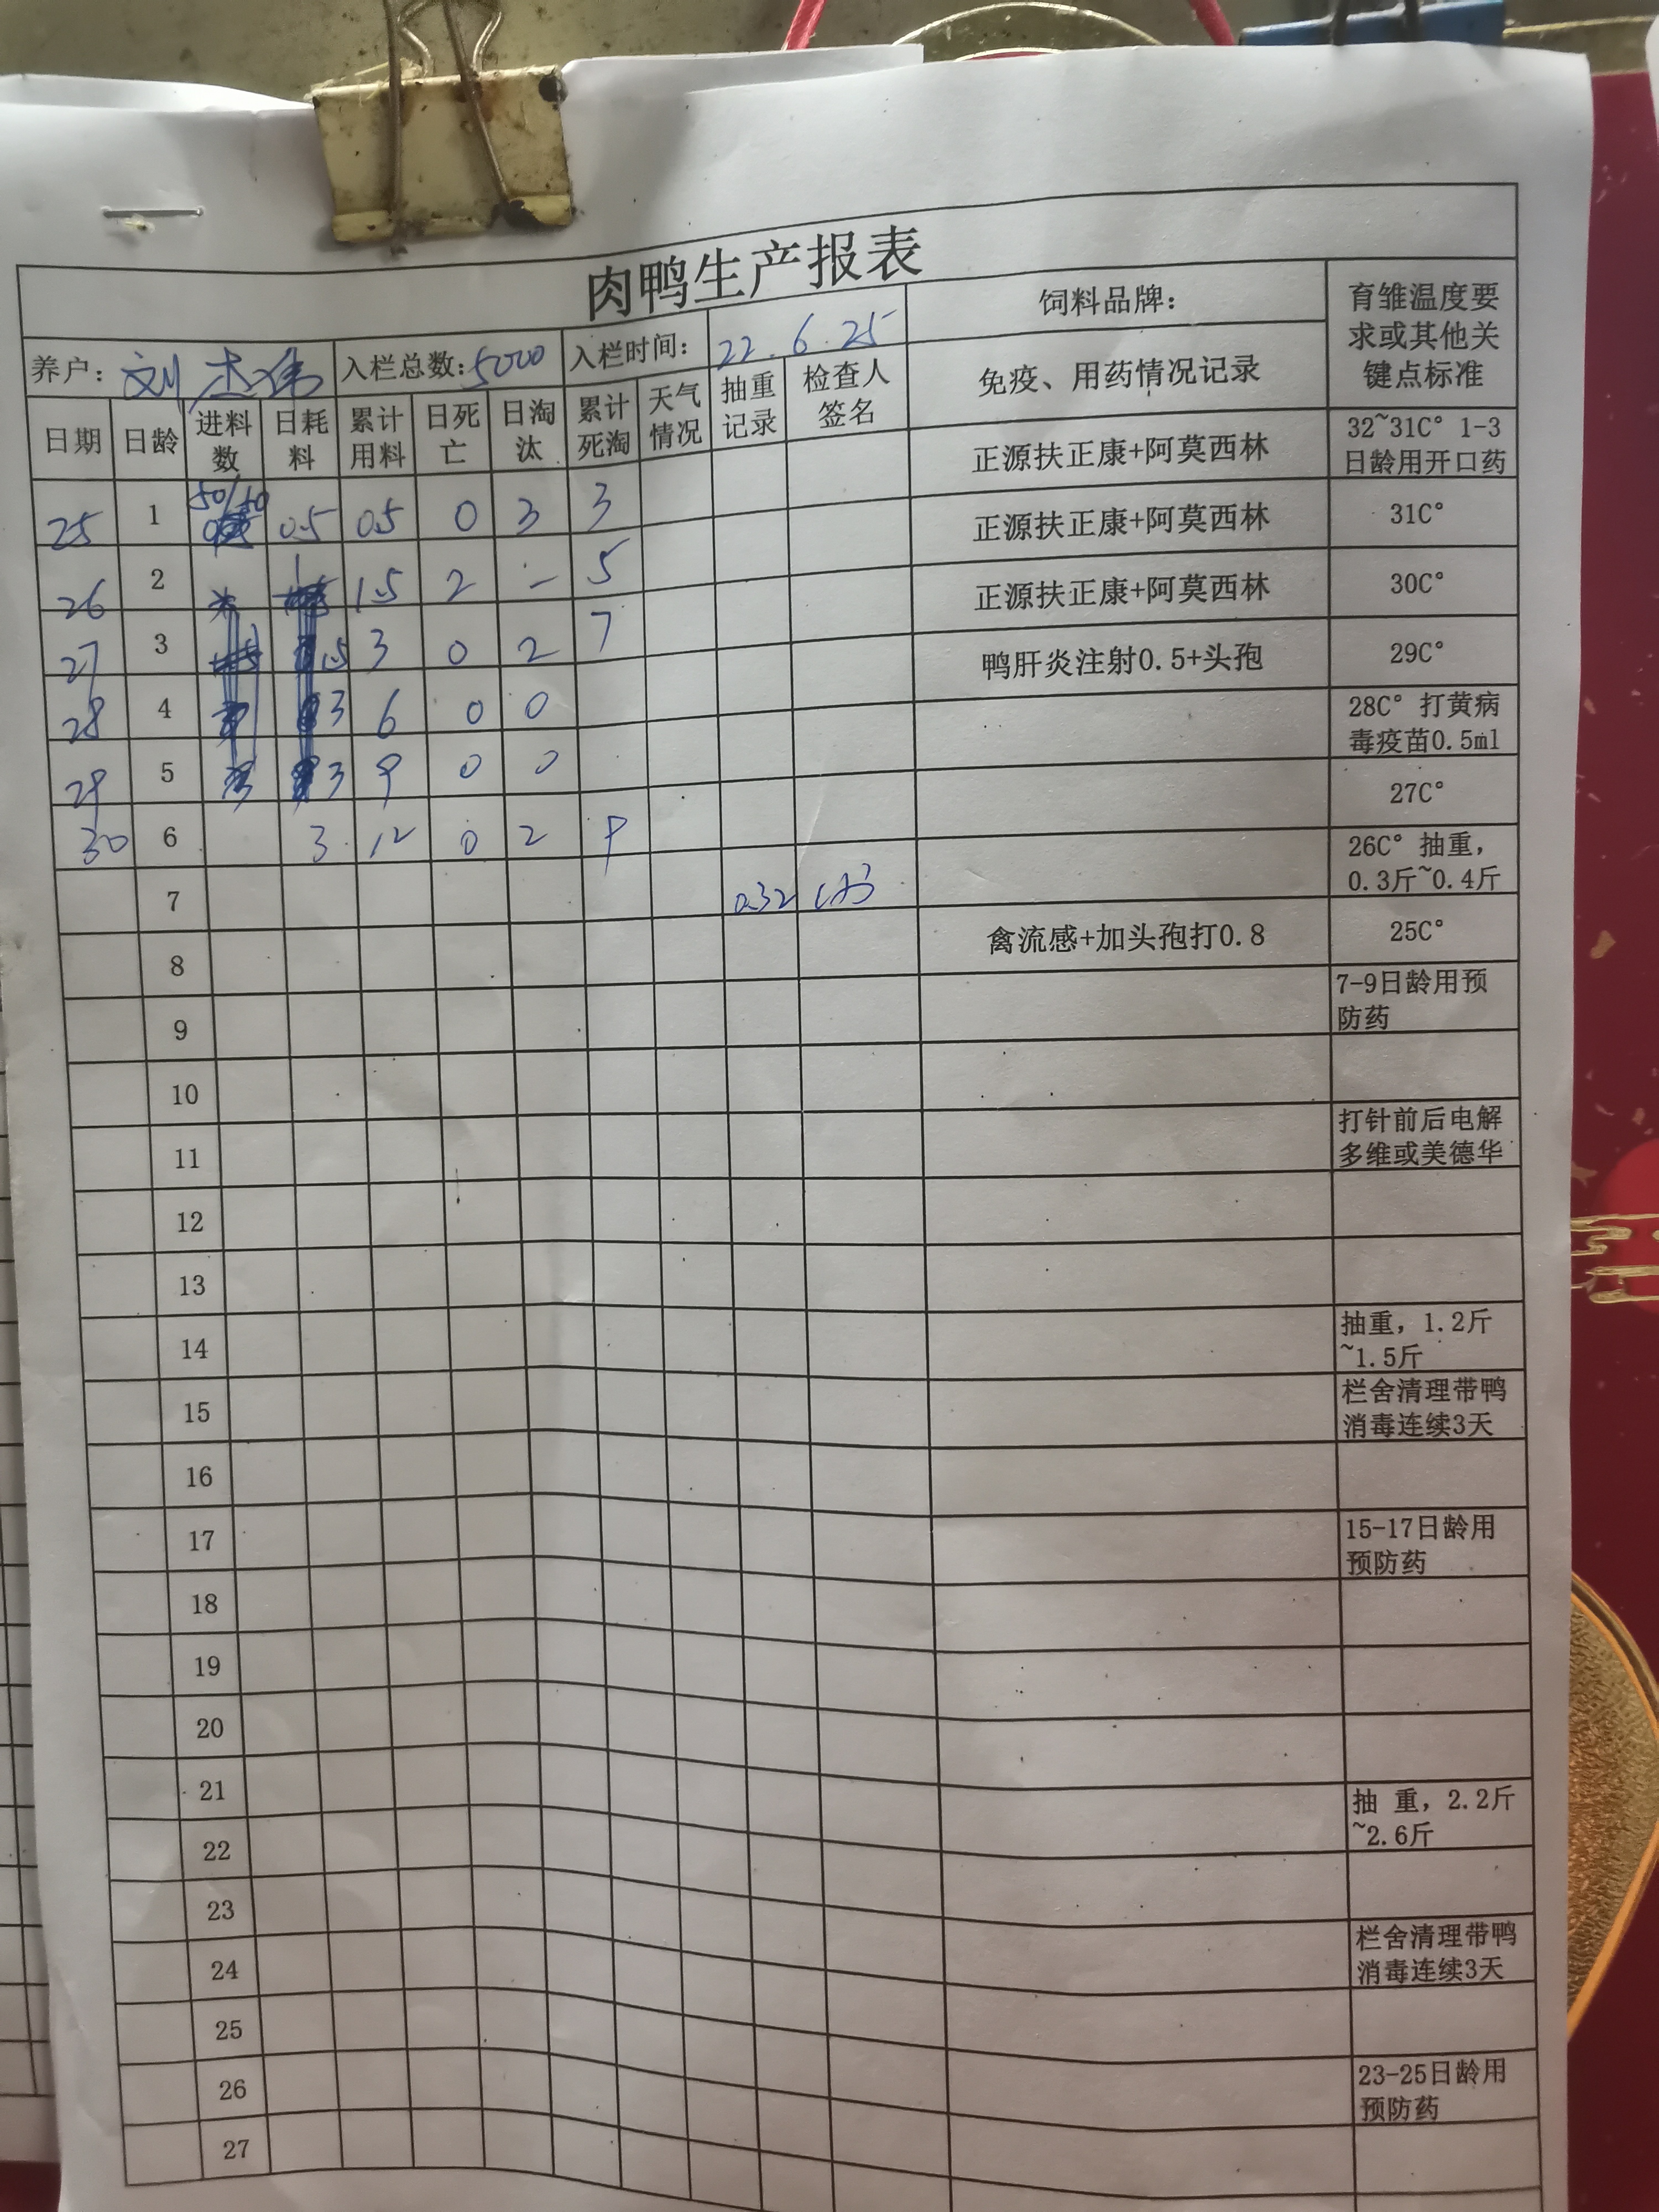 肉鸭生产报表
养户: 刘杰伟 入栏总数:5000 入栏时间: 22.6.25 饲料品牌: 育雏温度要求或其他关键点标准
日期 日龄 进料数 日耗料 累计用料 日死亡 日淘汰 累计死淘 天气情况 抽重记录 检查人签名 免疫、用药情况记录
25 1 50/10 0.5 0.5 0 3 3 正源扶正康+阿莫西林 32~31C° 1-3日龄用开口药
26 2 1 1.5 2 - 5 正源扶正康+阿莫西林 31C°
27 3 1.5 3 0 2 7 正源扶正康+阿莫西林 30C°
28 4 3 6 0 0 鸭肝炎注射0.5+头孢 29C°
29 5 3 9 0 0 28C° 打黄病毒疫苗0.5ml
30 6 3 12 0 2 9 27C°
7 0.32 26C° 抽重,0.3斤~0.4斤
8 禽流感+加头孢打0.8 25C°
9 7-9日龄用预防药
10
11 打针前后电解多维或美德华
12
13
14 抽重,1.2斤~1.5斤
15 栏舍清理带鸭消毒连续3天
16
17 15-17日龄用预防药
18
19
20
21 抽 重,2.2斤~2.6斤
22
23 栏舍清理带鸭消毒连续3天
24
25 23-25日龄用预防药
26
27